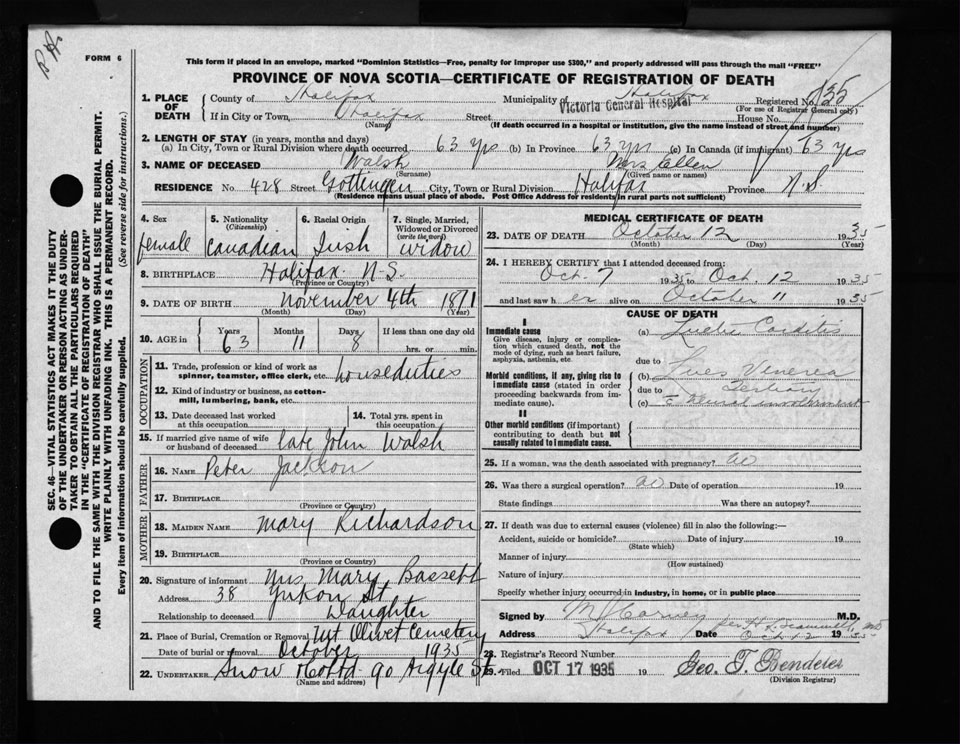 FORM 6
This form if placed in an envelope, marked "Dominion Statistics—Free, penalty for improper use $300," and properly addressed will pass through the mail "FREE"
PROVINCE OF NOVA SCOTIA—CERTIFICATE OF REGISTRATION OF DEATH
1. PLACE OF DEATH
County of Halifax Municipality of Halifax Registered No. 1135
(For use of Registrar General only)
If in City or Town, Halifax Street Victoria General Hospital House No.
(Name) (If death occurred in a hospital or institution, give the name instead of street and number)
2. LENGTH OF STAY (in years, months and days)
(a) In City, Town or Rural Division where death occurred 63 yrs (b) In Province 63 yrs (c) In Canada (if immigrant) 63 yrs
3. NAME OF DECEASED Walsh Mrs Ellen
(Surname) (Given name or names)
RESIDENCE No. 428 Street Gottingen City, Town or Rural Division Halifax Province N.S.
(Residence means usual place of abode. Post Office Address for residents in rural parts not sufficient)
4. Sex female
5. Nationality (Citizenship) Canadian
6. Racial Origin Irish
7. Single, Married, Widowed or Divorced (write the word) widow
8. BIRTHPLACE Halifax N-S.
(Province or Country)
9. DATE OF BIRTH November 4th 1871
(Month) (Day) (Year)
10. AGE in Years 63 Months 11 Days 8 If less than one day old
hrs. or min.
OCCUPATION
11. Trade, profession or kind of work as spinner, teamster, office clerk, etc. houseduties
12. Kind of industry or business, as cotton-mill, lumbering, bank, etc.
13. Date deceased last worked at this occupation
14. Total yrs. spent in this occupation
15. If married give name of wife or husband of deceased late John Walsh
FATHER
16. NAME Peter Jackson
17. BIRTHPLACE
(Province or Country)
MOTHER
18. MAIDEN NAME Mary Richardson
19. BIRTHPLACE
(Province or Country)
20. Signature of informant Mrs Mary Bassett
Address 38 Yukon St
Relationship to deceased Daughter
21. Place of Burial, Cremation or Removal Mt Olivet Cemetery
Date of burial or removal October 1935
22. UNDERTAKER Snow & Co Ltd 90 Argyle St.
(Name and address)
MEDICAL CERTIFICATE OF DEATH
23. DATE OF DEATH October 12 1935
(Month) (Day) (Year)
24. I HEREBY CERTIFY that I attended deceased from:
Oct. 7 1935 to Oct 12 1935
and last saw her alive on October 11 1935
CAUSE OF DEATH
I
Immediate cause
Give disease, injury or complication which caused death, not the mode of dying, such as heart failure, asphyxia, asthenia, etc.
(a) Luetic Carditis
due to
Morbid conditions, if any, giving rise to immediate cause (stated in order proceeding backwards from immediate cause).
(b) Lues Venerea
due to tertiary
(c) neural involvement
II
Other morbid conditions (if important) contributing to death but not causally related to immediate cause.
25. If a woman, was the death associated with pregnancy? no
26. Was there a surgical operation? no Date of operation 19
State findings Was there an autopsy?
27. If death was due to external causes (violence) fill in also the following:—
Accident, suicide or homicide? Date of injury 19
(State which)
Manner of injury
(How sustained)
Nature of injury
Specify whether injury occurred in industry, in home, or in public place
Signed by M.D.
Address Halifax Date Oct 12 1935
28. Registrar's Record Number
29. Filed OCT 17 1935 19 Geo. T. Bendeler
(Division Registrar)
SEC. 46—VITAL STATISTICS ACT MAKES IT THE DUTY
OF THE UNDERTAKER OR PERSON ACTING AS UNDER-
TAKER TO OBTAIN ALL THE PARTICULARS REQUIRED
IN THE "CERTIFICATE OF REGISTRATION OF DEATH"
AND TO FILE THE SAME WITH THE DIVISION REGISTRAR WHO SHALL ISSUE THE BURIAL PERMIT.
WRITE PLAINLY WITH UNFADING INK. THIS IS A PERMANENT RECORD.
Every item of information should be carefully supplied. (See reverse side for instructions.)